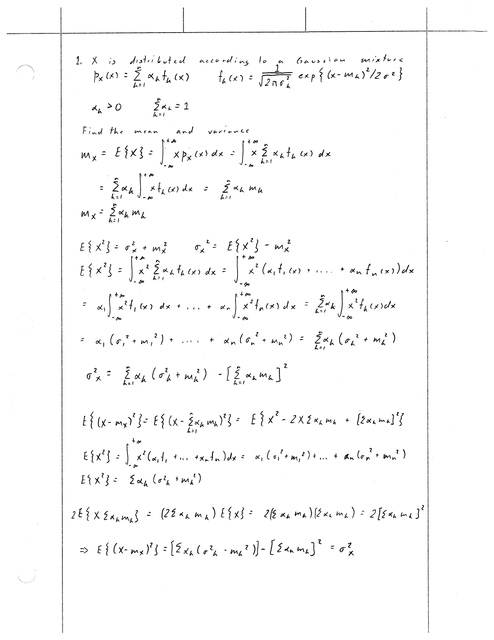 1. X is distributed according to a Gaussian mixture
p_x(x) = Σ_{k=1}^{n} α_k f_k(x)   f_k(x) = 1/√(2πσ_k²) exp{(x-m_k)²/2σ²}
α_k > 0   Σ_{k=1}^{n} α_k = 1
Find the mean and variance
m_x = E{X} = ∫_{-∞}^{+∞} x p_x(x) dx = ∫_{-∞}^{+∞} x Σ_{k=1}^{n} α_k f_k(x) dx
= Σ_{k=1}^{n} α_k ∫_{-∞}^{+∞} x f_k(x) dx = Σ_{k=1}^{n} α_k m_k
m_x = Σ_{k=1}^{n} α_k m_k
E{X²} = σ_x² + m_x²   σ_x² = E{X²} - m_x²
E{X²} = ∫_{-∞}^{+∞} x² Σ_{k=1}^{n} α_k f_k(x) dx = ∫_{-∞}^{+∞} x² (α_1 f_1(x) + .... + α_n f_n(x)) dx
= α_1 ∫_{-∞}^{+∞} x² f_1(x) dx + ... + α_n ∫_{-∞}^{+∞} x² f_n(x) dx = Σ_{k=1}^{n} α_k ∫_{-∞}^{+∞} x² f_k(x) dx
= α_1 (σ_1² + m_1²) + .... + α_n (σ_n² + m_n²) = Σ_{k=1}^{n} α_k (σ_k² + m_k²)
σ_x² = Σ_{k=1}^{n} α_k (σ_k² + m_k²) - [Σ_{k=1}^{n} α_k m_k]²
E{(X-m_x)²} = E{(X - Σ_{k=1}^{n} α_k m_k)²} = E{X² - 2X Σα_k m_k + [Σα_k m_k]²}
E{X²} = ∫_{-∞}^{+∞} x² (α_1 f_1 + ... + α_n f_n) dx = α_1 (σ_1² + m_1²) + ... + α_n (σ_n² + m_n²)
E{X²} = Σα_k (σ_k² + m_k²)
2E{X Σα_k m_k} = (2Σα_k m_k) E{X} = 2(Σα_k m_k)(Σα_k m_k) = 2[Σα_k m_k]²
⇒ E{(X-m_x)²} = [Σα_k (σ_k² - m_k²)] - [Σα_k m_k]² = σ_x²